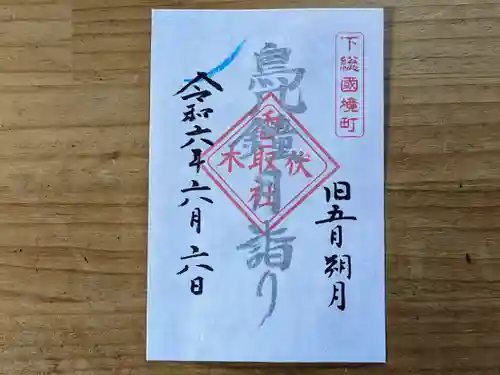 下総國境町
旧五月朔月
鳧鐘月詣り
香取社
伏木
令和六年六月六日